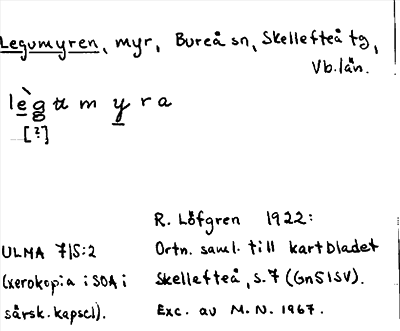 Legumyren, myr, Bureå sn, Skellefteå tg,
Vb.län.
lègʉmyra
[?]
R. Löfgren 1922:
ULMA 71S:2 Ortn. saml. till kartbladet
(xerokopia i SOA i Skellefteå, s.7 (Gn51SV).
särsk. kapsel). Exc. av M.N. 1967.